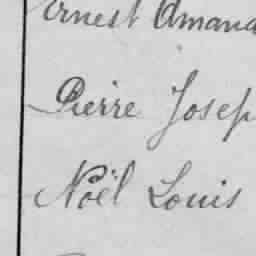 Ernest Amand
Pierre Josep
Noël Louis